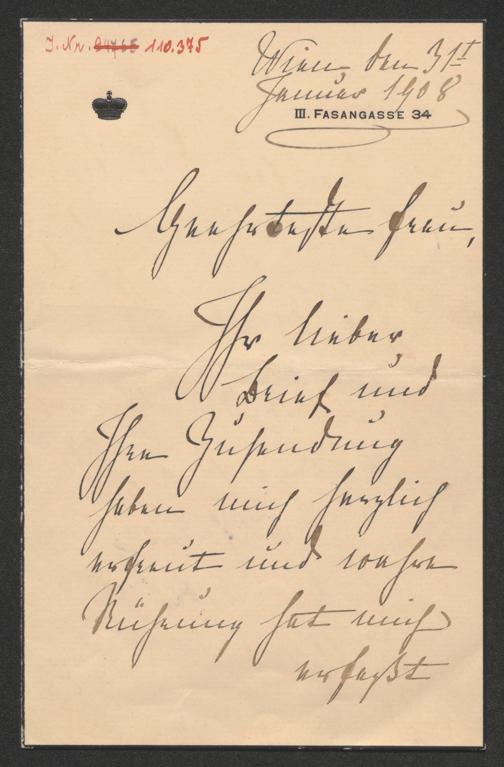 J. Nr. 110.375
Wien den 31t
Januar 1908
III. FASANGASSE 34
Geehrteste Frau,
Ihr lieber
Brief und
Ihre Zusendung
haben mich herzlich
erfreut und wahre
Rührung hat mich
erfaßt